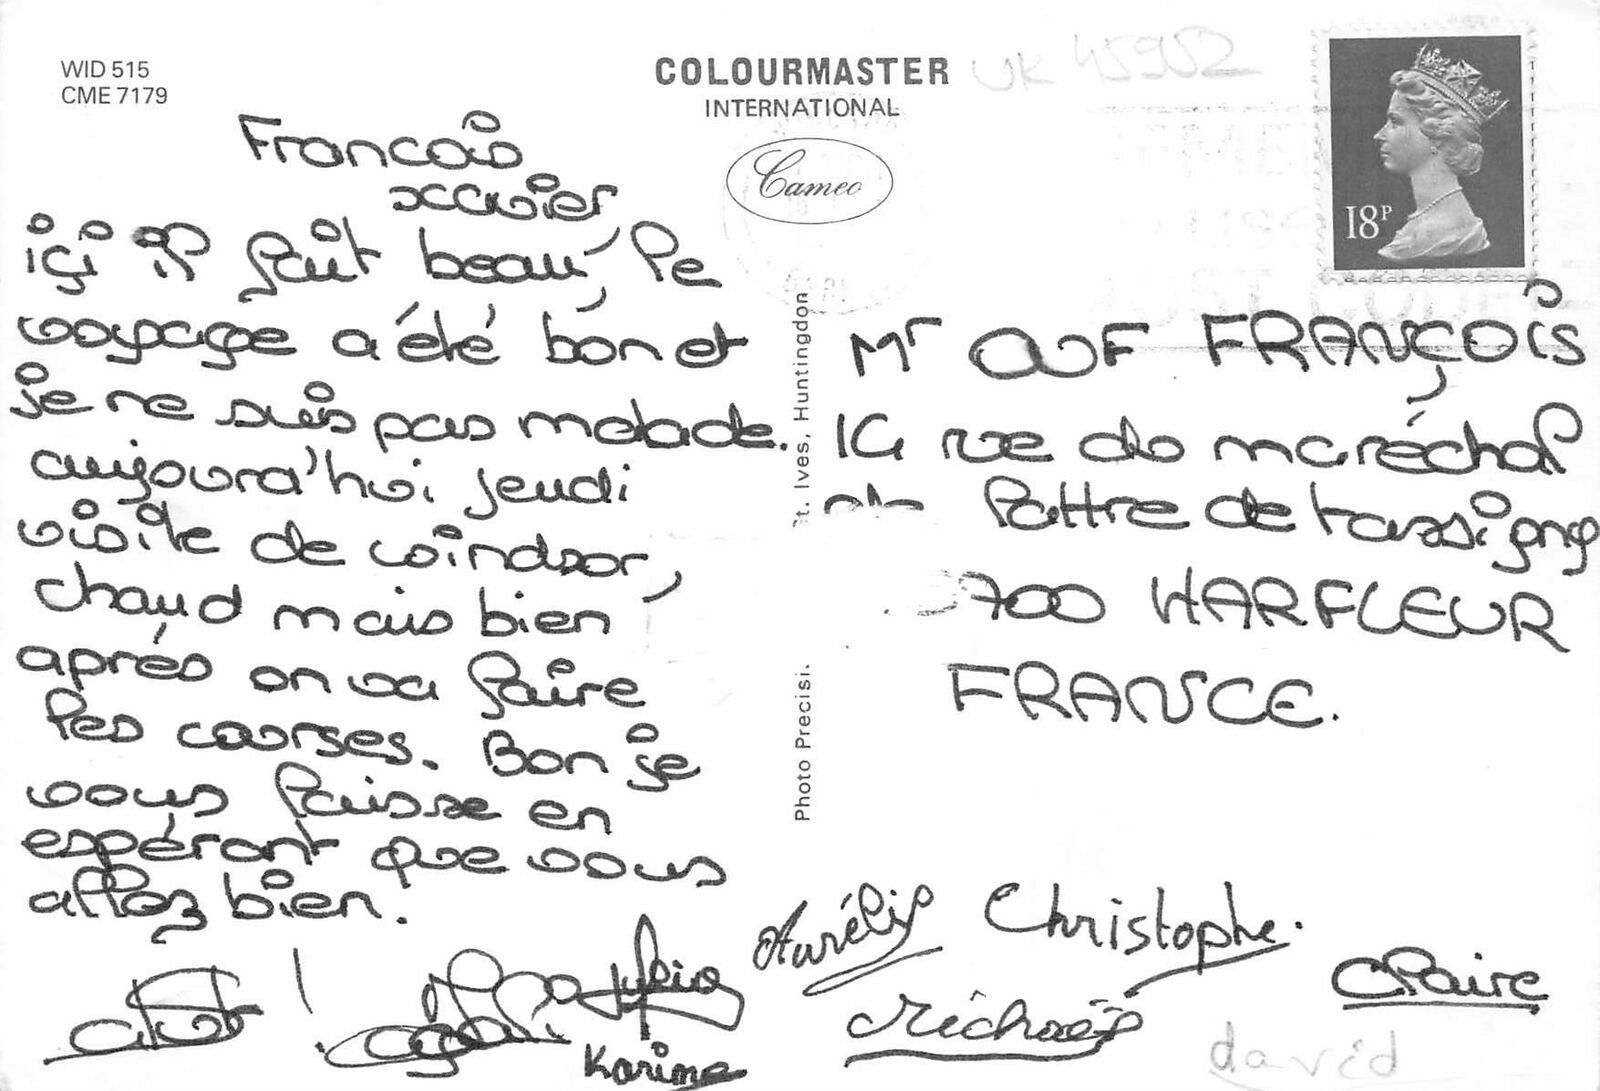 WID 515
CME 7179
COLOURMASTER
INTERNATIONAL
Cameo
UK 45952
18P
Francois
xavier
içi il fait beau, le
voyage a été bon et
je ne suis pas malade.
aujourd'hui jeudi
visite de windsor,
chaud mais bien
aprés on va faire
les courses. Bon je
vous laisse en
espérant que vous
allez bien.
Mr FRANÇOIS
rue du maréchal
lattre de tassigny
700 HARFLEUR
FRANCE.
t. Ives, Huntingdon
Photo Precisi.
Aurélie
Christophe.
Claire
Karima
Michaël
david